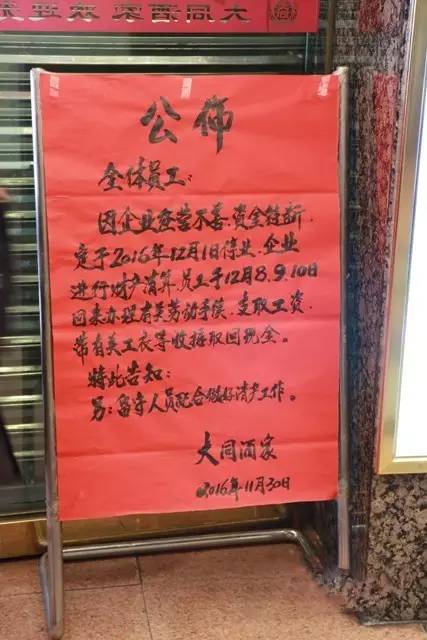 大同酒家
公佈
全体员工:
因企业经营不善.资金链断.
定于2016年12月1日停业.企业
进行财产清算.员工于12月8.9.10日
回来办理有关劳动手续.支取工资.
带有关工衣等收据取回现金。
特此告知:
另:留守人员配合做好清产工作。
大同酒家
2016年11月30日